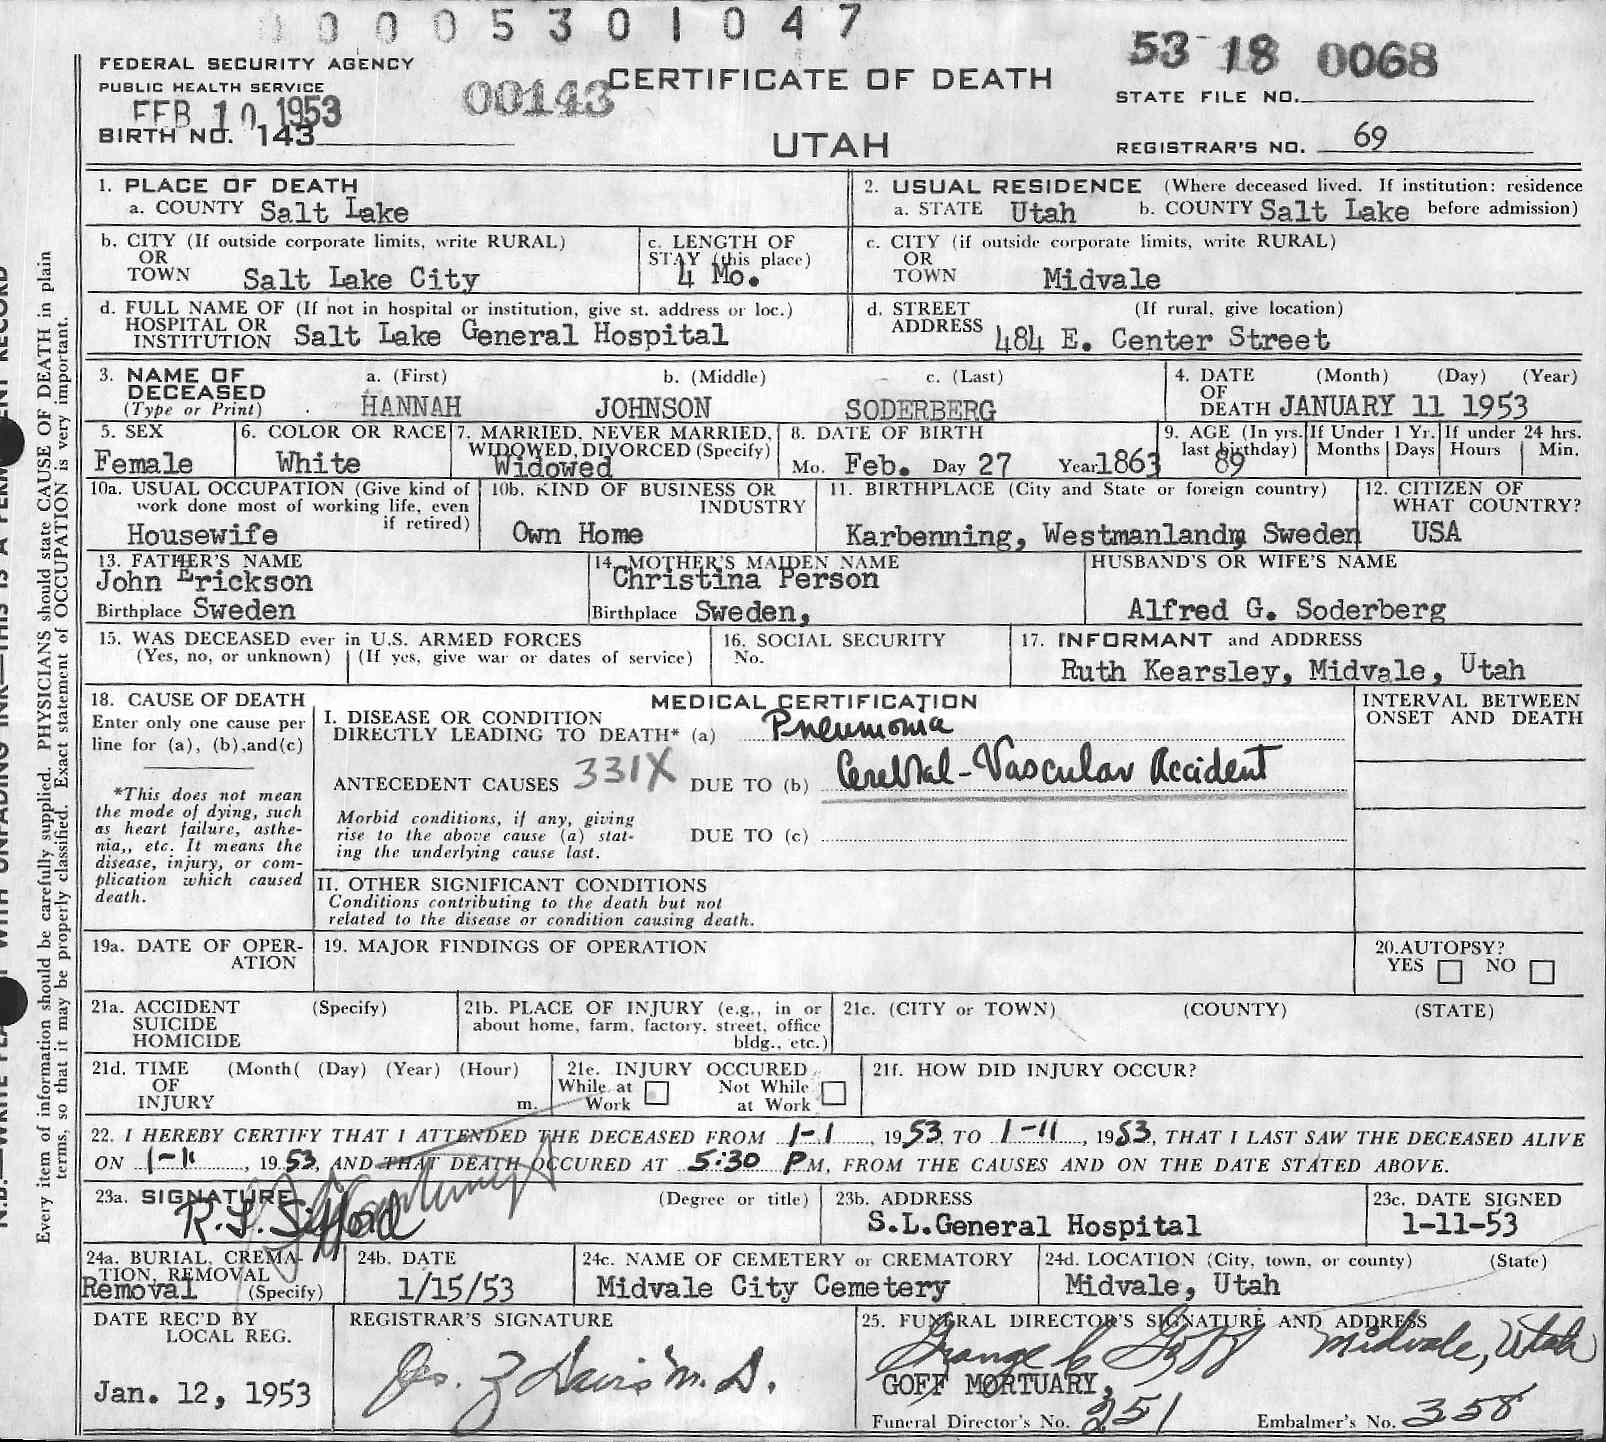 0 0 0 0 5 3 0 1 0 4 7
FEDERAL SECURITY AGENCY
PUBLIC HEALTH SERVICE
FEB 10 1953
BIRTH NO. 143
00143
CERTIFICATE OF DEATH
UTAH
53 18 0068
STATE FILE NO.
REGISTRAR'S NO. 69
1. PLACE OF DEATH
a. COUNTY Salt Lake
2. USUAL RESIDENCE (Where deceased lived. If institution: residence
a. STATE Utah b. COUNTY Salt Lake before admission)
b. CITY (If outside corporate limits, write RURAL)
OR
TOWN Salt Lake City
c. LENGTH OF
STAY (this place)
4 Mo.
c. CITY (if outside corporate limits, write RURAL)
OR
TOWN Midvale
d. FULL NAME OF (If not in hospital or institution, give st. address or loc.)
HOSPITAL OR
INSTITUTION Salt Lake General Hospital
d. STREET (If rural, give location)
ADDRESS 484 E. Center Street
3. NAME OF a. (First) b. (Middle) c. (Last)
DECEASED
(Type or Print) HANNAH JOHNSON SODERBERG
4. DATE (Month) (Day) (Year)
OF
DEATH JANUARY 11 1953
5. SEX
Female
6. COLOR OR RACE
White
7. MARRIED, NEVER MARRIED,
WIDOWED, DIVORCED (Specify)
Widowed
8. DATE OF BIRTH
Mo. Feb. Day 27 Year 1863
9. AGE (In yrs.
last birthday)
89
If Under 1 Yr.
Months Days
If under 24 hrs.
Hours Min.
10a. USUAL OCCUPATION (Give kind of
work done most of working life, even
if retired)
Housewife
10b. KIND OF BUSINESS OR
INDUSTRY
Own Home
11. BIRTHPLACE (City and State or foreign country)
Karbenning, Westmanland, Sweden
12. CITIZEN OF
WHAT COUNTRY?
USA
13. FATHER'S NAME
John Erickson
Birthplace Sweden
14. MOTHER'S MAIDEN NAME
Christina Person
Birthplace Sweden,
HUSBAND'S OR WIFE'S NAME
Alfred G. Soderberg
15. WAS DECEASED ever in U.S. ARMED FORCES
(Yes, no, or unknown) (If yes, give war or dates of service)
16. SOCIAL SECURITY
No.
17. INFORMANT and ADDRESS
Ruth Kearsley, Midvale, Utah
18. CAUSE OF DEATH
Enter only one cause per
line for (a), (b), and (c)
*This does not mean
the mode of dying, such
as heart failure, asthe-
nia,, etc. It means the
disease, injury, or com-
plication which caused
death.
MEDICAL CERTIFICATION
I. DISEASE OR CONDITION
DIRECTLY LEADING TO DEATH* (a) Pneumonia
ANTECEDENT CAUSES 331X DUE TO (b) Cerebral-Vascular Accident
Morbid conditions, if any, giving
rise to the above cause (a) stat-
ing the underlying cause last.
DUE TO (c)
II. OTHER SIGNIFICANT CONDITIONS
Conditions contributing to the death but not
related to the disease or condition causing death.
INTERVAL BETWEEN
ONSET AND DEATH
19a. DATE OF OPER-
ATION
19. MAJOR FINDINGS OF OPERATION
20. AUTOPSY?
YES NO
21a. ACCIDENT (Specify)
SUICIDE
HOMICIDE
21b. PLACE OF INJURY (e.g., in or
about home, farm, factory, street, office
bldg., etc.)
21c. (CITY or TOWN) (COUNTY) (STATE)
21d. TIME (Month( (Day) (Year) (Hour)
OF
INJURY m.
21e. INJURY OCCURED
While at Work
Not While at Work
21f. HOW DID INJURY OCCUR?
22. I HEREBY CERTIFY THAT I ATTENDED THE DECEASED FROM 1-1, 1953, TO 1-11, 1953, THAT I LAST SAW THE DECEASED ALIVE
ON 1-11, 1953, AND THAT DEATH OCCURED AT 5:30 P M, FROM THE CAUSES AND ON THE DATE STATED ABOVE.
23a. SIGNATURE (Degree or title)
R. S. Sifford
23b. ADDRESS
S.L.General Hospital
23c. DATE SIGNED
1-11-53
24a. BURIAL, CREMA-
TION, REMOVAL
Removal (Specify)
24b. DATE
1/15/53
24c. NAME OF CEMETERY or CREMATORY
Midvale City Cemetery
24d. LOCATION (City, town, or county) (State)
Midvale, Utah
DATE REC'D BY
LOCAL REG.
Jan. 12, 1953
REGISTRAR'S SIGNATURE
Jos. Z Davis M. D.
25. FUNERAL DIRECTOR'S SIGNATURE AND ADDRESS
Goff Midvale, Utah
GOFF MORTUARY,
Funeral Director's No. 251 Embalmer's No. 358
Every item of information should be carefully supplied. PHYSICIANS should state CAUSE OF DEATH in plain
terms, so that it may be properly classified. Exact statement of OCCUPATION is very important.